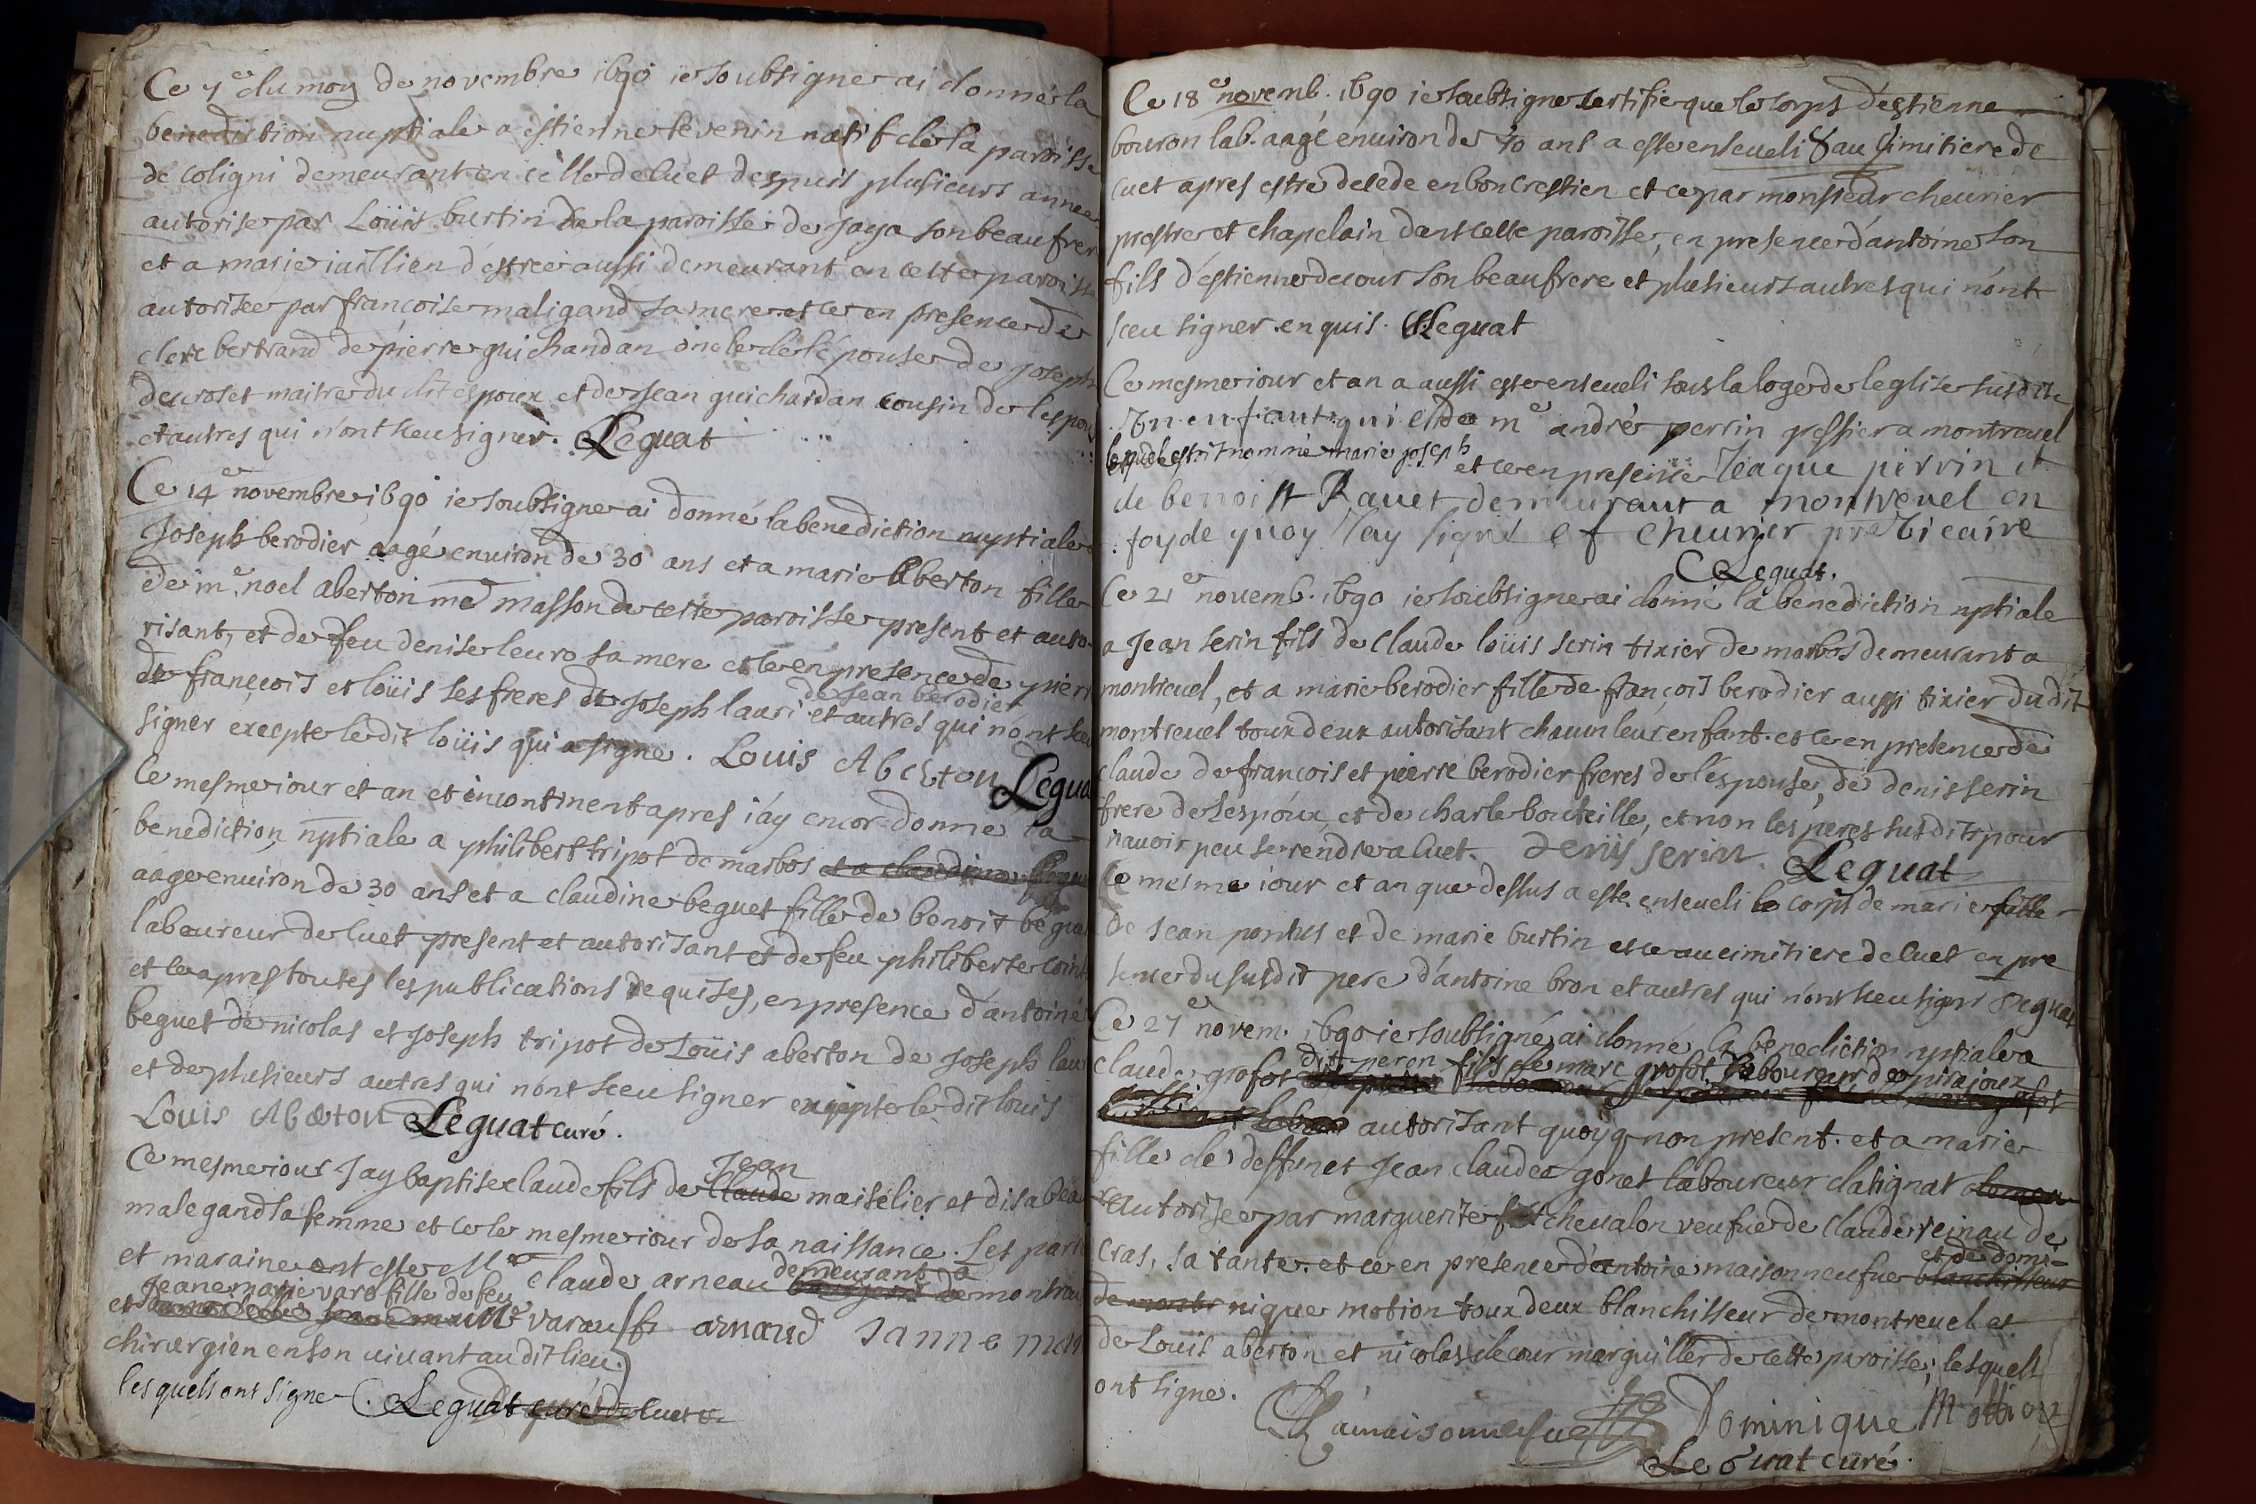 Ce 7e du moy de novembre 1690 ie soubsigne ai donné la
benediction nuptiale a estienne levenin natif de la paroisse
de coligni demeurant en celle de cuet despuis plusieurs annees
autorise par Loüis burtin de la paroisse de Jaya son beaufrere
et a marie iuillien d'estree aussi demeurant en cette paroisse
autorisee par francoise maligand sa mere et ce en presence de
clere bertrand de pierre guichardan oncle de l'épouse de Joseph
decroset maitre du dit espoux et de Jean guichardan cousin de lespouse
et autres qui n'ont sceu signer. Leguat
Ce 14e novembre 1690 ie soubsigne ai donné la benediction nuptiale a
Joseph berodier aagé environ de 30 ans et a marie Aberton fille
de me noel aberton me masson de cette paroisse present et auto-
risant, et de feu denise leuro sa mere et ce en presence de pierre
de françois et loüis ses freres de Joseph lauri de Jean berodier et autres qui n'ont sceu
signer excepte le dit loüis qui a signe. Louis Aberton Leguat
Ce mesme iour et an et incontinent apres i'ay encor donne la
benediction nptiale a philibert tripot de marbos et a claudine
aage environ de 30 ans et a claudine beguet fille de benoit beguet
laboureur de cuet present et autorisant et de feu philiberte
et ce apres toutes les publications requises, en presence d'antoine
beguet de nicolas et Joseph tripot de Loüis aberton de Joseph lauri
et de plusieurs autres qui n'ont sceu signer excepte le dit louis
Louis Aberton Leguat curé.
Ce mesme iour J'ay baptise claude fils de claude Jean maiselier et d'isabeau
malegand sa femme et ce le mesme iour de sa naissance. Les parain
et maraine ont este claude arneau demeurant a montreuel
et Jeane marie varo fille de feu me varau
chirurgien en son vivant au dit lieu.
f arnaud Janne mari
lesquels ont signe. Leguat curé de cuet
Ce 18e novemb. 1690 ie soubsigne certifie que le corps d'estienne
bouron lab. aagé environ de 70 ans a este enseveli au cimitiere de
cuet apres estre decede en bon crestien et ce par monsieur cheurier
prestre et chapelain dans cette paroisse, en presence d'antoine son
fils d'estienne decour son beaufrere et plusieurs autres qui n'ont
sceu signer enquis. Leguat
Ce mesme iour et an a aussi este enseveli sous la loge de leglise susdite
un enfiant qui est de me andré perrin greffier a montreuel
lequel estoit nommé marie joseph et ce en presence Jaque perrin et
de benoist Ravet demeurant a montrevel en
foy de quoy Jay signé C f Cheurier pre vicaire
Leguat.
Ce 21e novemb. 1690 ie soubsigne ai donné la benediction nptiale
a Jean serin fils de claude loüis serin tixier de marbos demeurant a
montreuel, et a marie berodier fille de françois berodier aussi tixier du dit
montreuel toux deux autorisant chacun leur enfant. et ce en presence de
claude de francois et pierre berodier freres de l'espouse, de denis serin
frere de lespoux, et de charle bouteille, et non les peres susdits pour
n'avoir peu se rendre a cuet. Denis serin. Leguat
Ce mesme iour et an que dessus a este enseveli le corps de marie fille
de Jean pontus et de marie burtin et ce au cimitiere de cuet en pre
sence du susdit pere d'antoine bron et autres qui n'ont sceu signer Leguat
Ce 27e novem. 1690 ie soubsigné ai donne la benediction nptiale a
claude grofot dit peron fils de marc grofot laboureur de pirajoux
autorisant quoyq non present. et a marie
fille de deffunct Jean claude gonet laboureur datignat
autorisee par marguerite chevalon veufve de claude reinau de
cras, sa tante. et ce en presence d'antoine maisonneufve et de domi-
nique motion toux deux blanchisseur de montreuel et
de Louis aberton et nicolas decour marguiller de cette paroisse, lesquels
ont signe.
A maisonneufve Dominique Mottion
Le Guat curé.